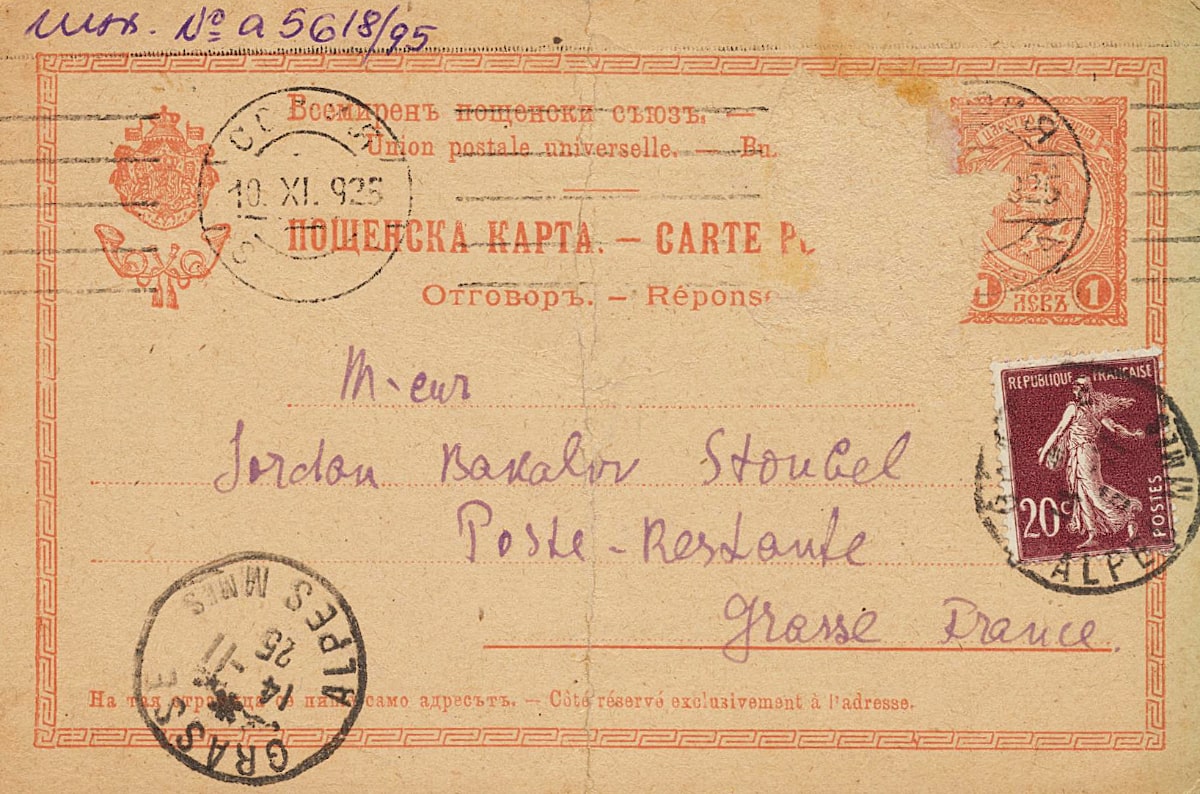 Инв. № a 5618/95
Всемиренъ пощенски съюзъ. —
Union postale universelle. — Bu
ПОЩЕНСКА КАРТА. — CARTE P
Отговоръ. — Réponse
1 ЛЕВЪ 1
10. XI. 925
925
M-eur
Jordan Bakalov Stoubel
Poste-Restante
Grasse France.
REPUBLIQUE FRANÇAISE
20c
POSTES
ALPES MMES
14 11
25
GRASSE
На тая страница се пише само адресътъ. — Côté réservé exclusivement à l'adresse.